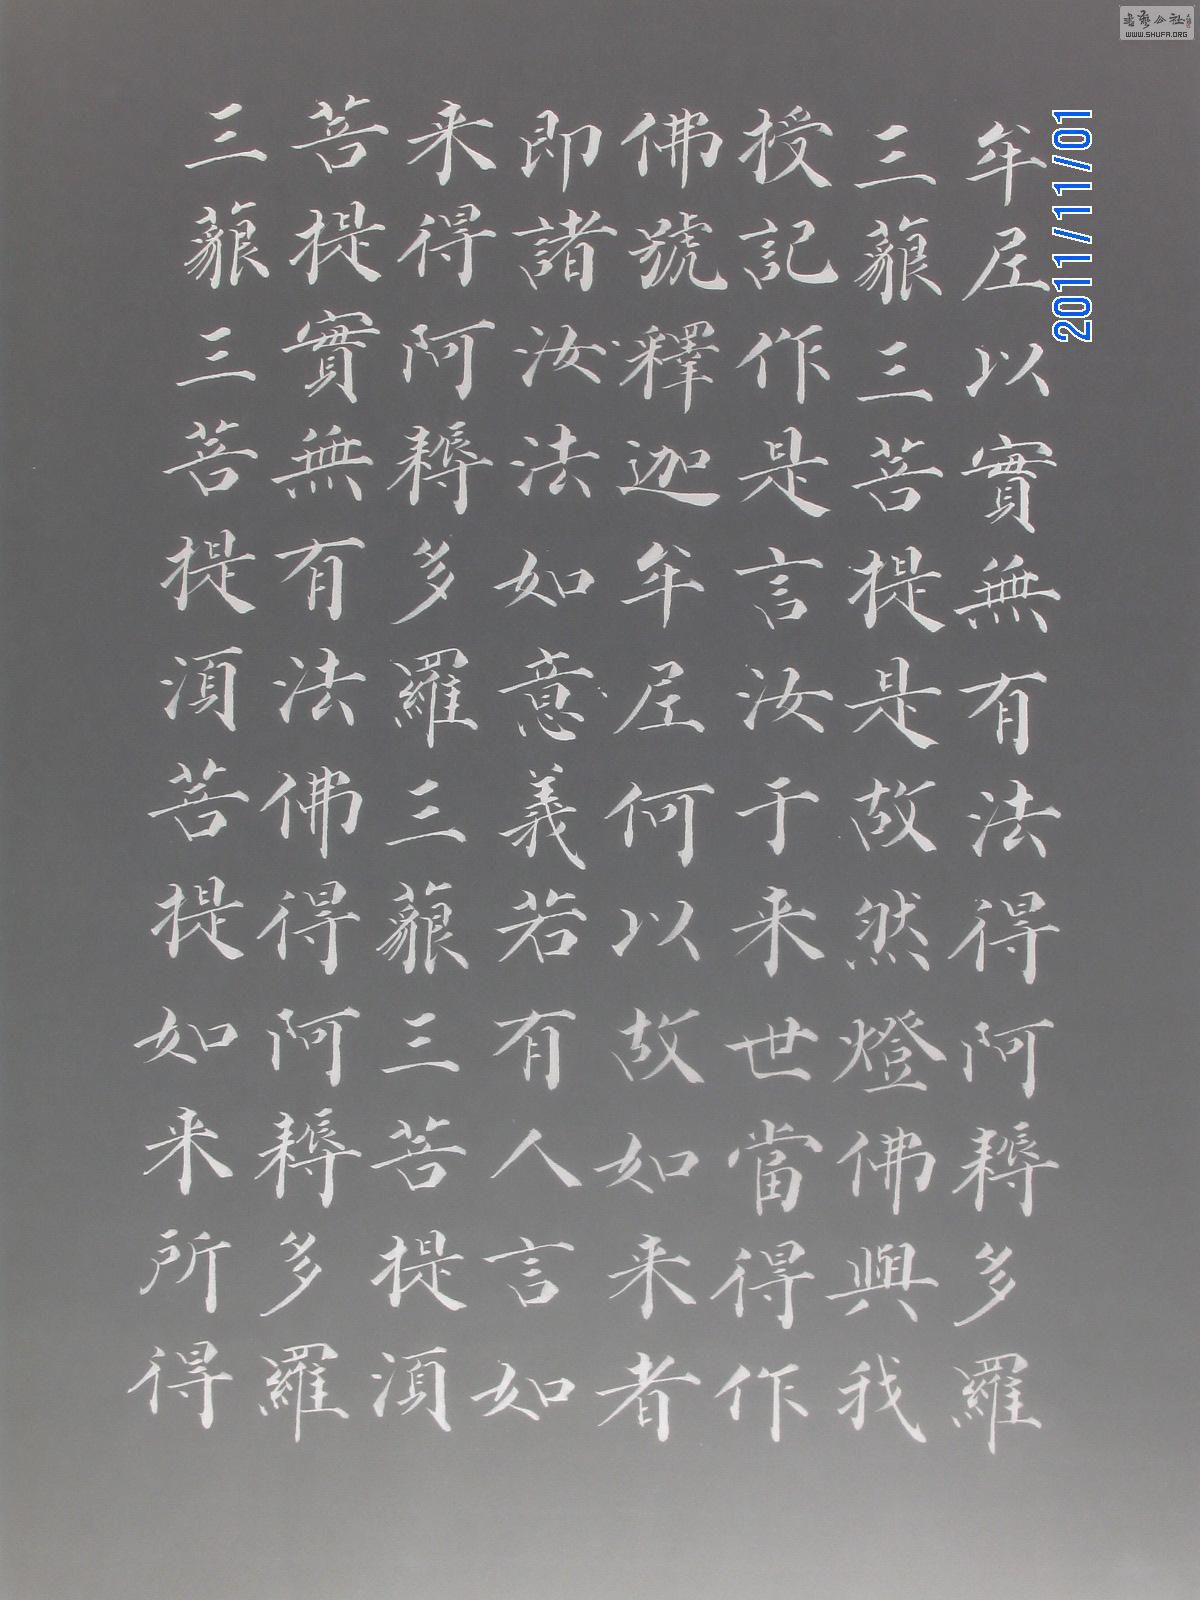 牟尼以實無有法得阿耨多羅
三藐三菩提是故然燈佛與我
授記作是言汝于来世當得作
佛號釋迦牟尼何以故如来者
即諸汝法如意義若有人言如
来得阿耨多羅三藐三菩提須
菩提實無有法佛得阿耨多羅
三藐三菩提須菩提如来所得
2011/11/01
书艺公社
WWW.SHUFA.ORG